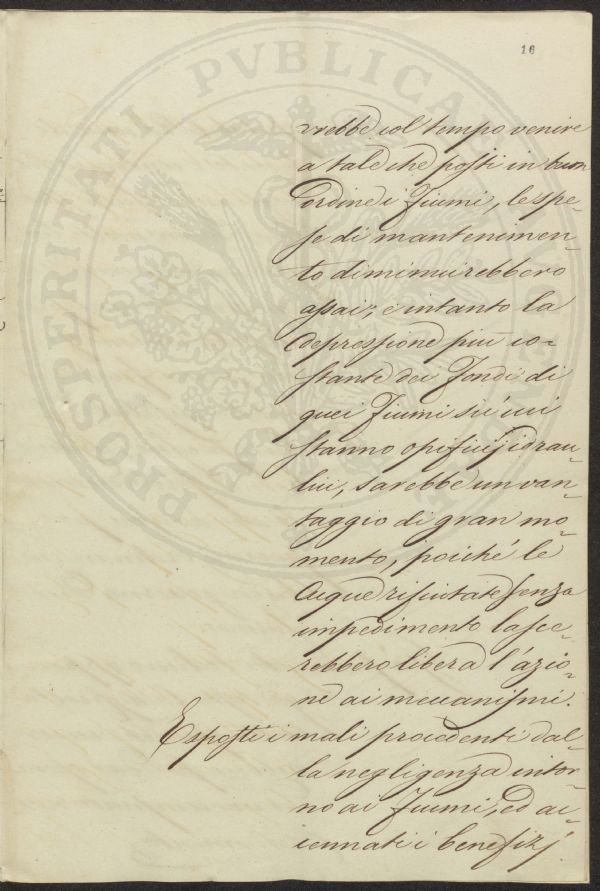 16
vrebbe col tempo venire
a tale che posti in buon
ordine i Fiumi, le spe-
se di mantenimen-
to diminuirebbero
assai; e intanto la
depressione più co-
stante dei Fondi di
quei Fiumi su cui
stanno opificij idrau-
lici, sarebbe un van-
taggio di gran mo-
mento, poiché le
Acque rifiutate senza
impedimento lasce-
rebbero libera l'azio-
ne ai meccanismi.
Esposti i mali procedenti dal-
la negligenza intor-
no ai Fiumi, ed ac-
cennati i benefizj
PROSPERITATI PVBLICAE